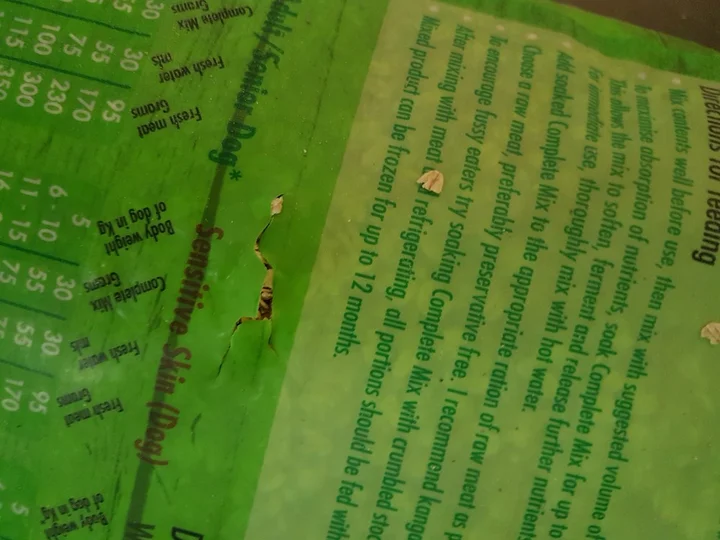 Directions for Feeding
Mix contents well before use, then mix with suggested volume of
To maximise absorption of nutrients, soak Complete Mix for up to
This allows the mix to soften, ferment and release further nutrients
For immediate use, thoroughly mix with hot water.
Add soaked Complete Mix to the appropriate ration of raw meat as p
Choose a raw meat, preferably preservative free. I recommend kanga
To encourage fussy eaters try soaking Complete Mix with crumbled stoc
After mixing with meat refrigerating, all portions should be fed with
Mixed product can be frozen for up to 12 months.
Senior Dog*
Complete Mix
Grams
Fresh water
mls
Fresh meat
Grams
30 30 95
55 75 170
75 100 230
115 300
Sensitive Skin (Dog)
Body weight
of dog in Kg
Complete Mix
Grams
Fresh water
mls
Fresh meat
Grams
5 30 30 95
6 - 10 55 55 170
11 - 15 75
Body weight
of dog in Kg
5